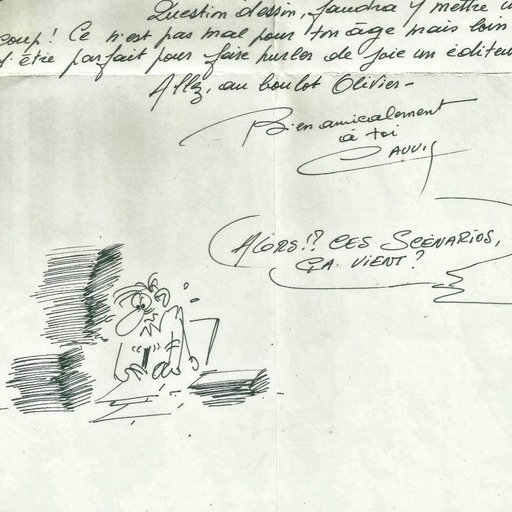 Question dessin, faudra y mettre u
coup! Ce n'est pas mal pour ton âge mais loin
d'être parfait pour faire hurler de joie un éditeu
Allez, au boulot Olivier-
Bien amicalement
à toi
CAUVIN
ALORS!? CES SCÉNARIOS,
ÇA VIENT?